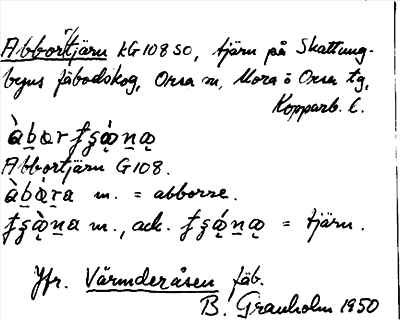 Abbortjärn KG108SO, tjärn på Skattung-
byns fäbodskog, Orsa sn, Mora o Orsa tg,
Kopparb. l.
Abbortjärn G108.
m. = abborre.
m., ack. = tjärn.
Jfr. Värmderåsen fäb.
B. Granholm 1950